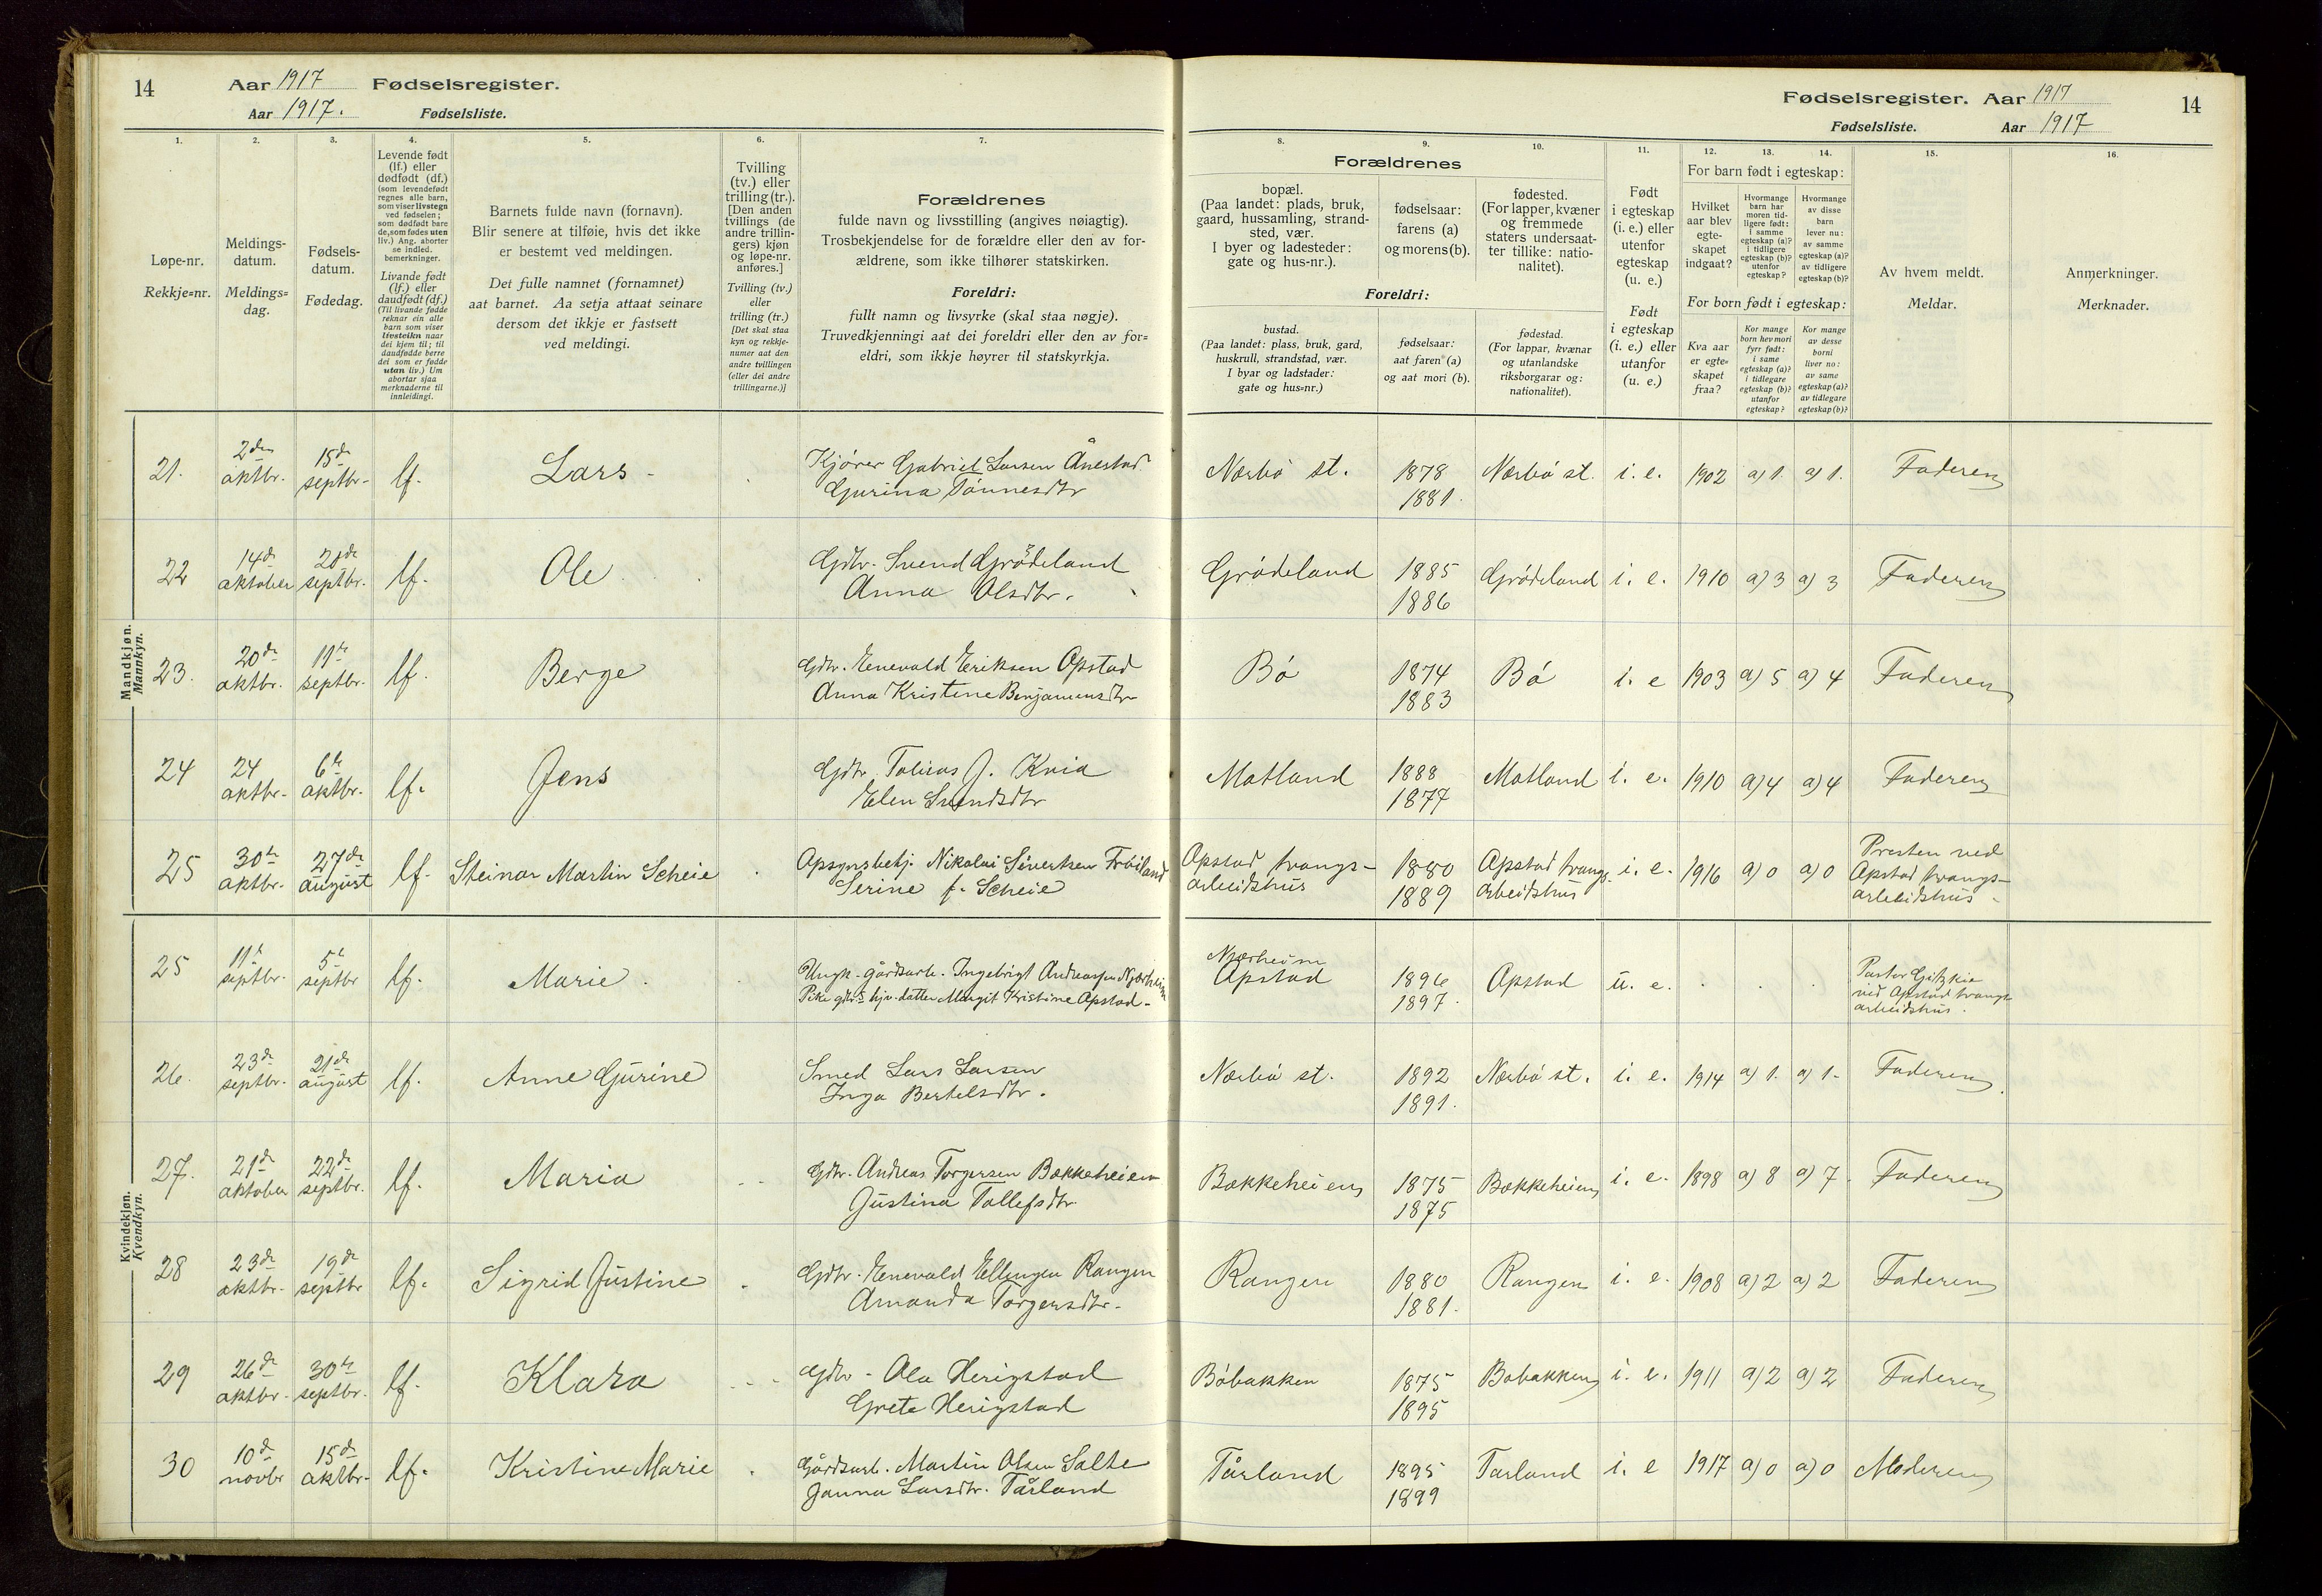 14 Aar 1917 Fødselsregister.
Aar 1917. Fødselsliste.
Fødselsregister. Aar 1917 14
Fødselsliste. Aar 1917
1. 2. 3. 4. 5. 6. 7.
Løpe-nr.
Rekkje=nr.
Meldings-
datum.
Meldings=
dag.
Fødsels-
datum.
Fødedag.
Levende født
(lf.) eller
dødfødt (df.)
(som levendefødt
regnes alle barn,
som viser livstegn
ved fødselen;
som dødfødt bare
de, som fødes uten
liv.) Ang. aborter
se indled.
bemerkninger.
Livande født
(lf.) eller
daudfødt (df.)
(Til livande fødde
reknar ein alle
barn som viser
livsteikn naar
dei kjem til; til
daudfødde berre
dei som er fødde
utan liv.) Um
abortar sjaa
merknaderne til
innleidingi.
Barnets fulde navn (fornavn).
Blir senere at tilføie, hvis det ikke
er bestemt ved meldingen.
Det fulle namnet (fornamnet)
aat barnet. Aa setja attaat seinare
dersom det ikkje er fastsett
ved meldingi.
Tvilling
(tv.) eller
trilling (tr.).
[Den anden
tvillings (de
andre trillin-
gers) kjøn
og løpe-nr.
anføres.]
Tvilling (tv.)
eller
trilling (tr.)
[Det skal staa
kyn og rekkje-
numer aat den
andre tvillingen
(eller dei andre
trillingarne.)]
Forældrenes
fulde navn og livsstilling (angives nøiagtig).
Trosbekjendelse for de forældre eller den av for-
ældrene, som ikke tilhører statskirken.
Foreldri:
fullt namn og livsyrke (skal staa nøgje).
Truvedkjenningi aat dei foreldri eller den av for=
eldri, som ikkje høyrer til statskyrkja.
8. 9. 10. 11. 12. 13. 14. 15. 16.
Forældrenes
bopæl.
(Paa landet: plads, bruk,
gaard, hussamling, strand-
sted, vær.
I byer og ladesteder:
gate og hus-nr.).
fødselsaar:
farens (a)
og morens (b).
fødested.
(For lapper, kvæner
og fremmede
staters undersaat-
ter tillike: natio-
nalitet).
Foreldri:
bustad.
(Paa landet: plass, bruk, gard,
huskrull, strandstad, vær.
I byar og ladstader:
gate og hus=nr.)
fødselsaar:
aat faren (a)
og aat mori (b).
fødestad.
(For lappar, kvænar
og utanlandske
riksborgarar og:
nationalitet).
Født
i egteskap
(i. e.) eller
utenfor
egteskap
(u. e.)
Født
i egteskap
(i. e.) eller
utanfor
(u. e.)
For barn født i egteskap:
Hvilket
aar blev
egte-
skapet
indgaat?
Hvormange
barn har
moren tid-
ligere født:
i samme
egteskap (a)?
i tidligere
egteskap (b)?
utenfor
egteskap?
Hvormange
av disse
barn
lever nu:
av samme
egteskap (a)?
av tidligere
egteskap (b)?
For born født i egteskap:
Kva aar
er egte=
skapet
fraa?
Kor mange
born hev mori
fyrr født:
i same
egteskap (a)?
i tidlegare
egteskap (b)?
utanfor
egteskap?
Kor mange
av desse
borni
liver no:
av same
egteskap (a)?
av tidlegare
egteskap (b)?
Av hvem meldt.
Meldar.
Anmerkninger.
Merknader.
Mandkjøn.
Mannkyn.
21. 2den oktbr. 15de septbr. lf. Lars
Kjører Gabriel Larsen Ånestad
Gurina Tønnesdtr
Nærbø st. 1878 1881. Nærbø st. i. e. 1902 a) 1. a) 1. Faderen
22 14de oktober 20de septbr. lf. Ole
Gdbr. Svend Grødeland
Anna Olsdtr.
Grødeland 1885 1886 Grødeland i. e. 1910 a) 3 a) 3 Faderen
23. 20de oktbr. 11te septbr. lf. Berge
Gdbr. Enevald Eriksen Opstad
Anna Kristine Benjaminsdtr
Bø 1874 1883 Bø i. e 1903 a) 5 a) 4 Faderen
24 24 oktbr. 6te oktbr. lf. Jens
Gdbr. Tobias J. Kvia
Elen Svendsdtr
Motland 1888 1877 Motland i. e. 1910 a) 4 a) 4 Faderen
25 30te oktbr. 27de august lf. Steinar Martin Scheie
Nikolai Sivertsen
Serine f. Scheie
Opstad tvangs-
arbeidshus
1880 1889
Opstad tvangs-
arbeidshus
i. e. 1916 a) 0 a) 0
Presten ved
Opstad tvangs-
arbeidshus
Kvindekjøn.
Kvendkyn.
25 11te septbr. 5te septbr lf. Marie
Ungk. gårdsarb. Ingebrigt Andreassen Njærheim
Pike hjv. datter Margit Kristine Opstad
Njærheim
Opstad
1896 1897. Opstad u. e.
Pastor
ved Opstad tvangs
arbeidshus.
26. 23de septbr. 21de august lf. Anne Gurine
Smed Lars Larsen
Inga Bertelsdtr.
Nærbø st. 1892 1891. Nærbø st. i. e. 1914 a) 1. a) 1. Faderen
27. 21de oktober 22de septbr. lf. Maria
Gdbr. Andreas Torgersen Bakkeheien
Gustina Tollefsdtr
Bakkeheien 1875 1875 Bakkeheien i. e. 1898 a) 8 a) 7. Faderen
28 23de oktbr. 19de septbr lf. Sigrid Justine
Gdbr. Enevald Ellingsen Rangen
Amanda Torgersdtr.
Rangen 1880 1881. Rangen i. e. 1908 a) 2 a) 2 Faderen
29 26de oktbr. 30te septbr. lf. Klara
Gdbr. Ola Herigstad
Grete Herigstad
Bøbakken 1875 1895 Bøbakken i. e. 1911 a) 2 a) 2 Faderen
30 10de novbr 15de oktbr. lf. Kristine Marie
Gårdsarb. Martin Olsen Salte
Janna Larsdtr. Tårland
Tårland 1895 1899 Tårland i. e 1917 a) 0 a) 0 Moderen